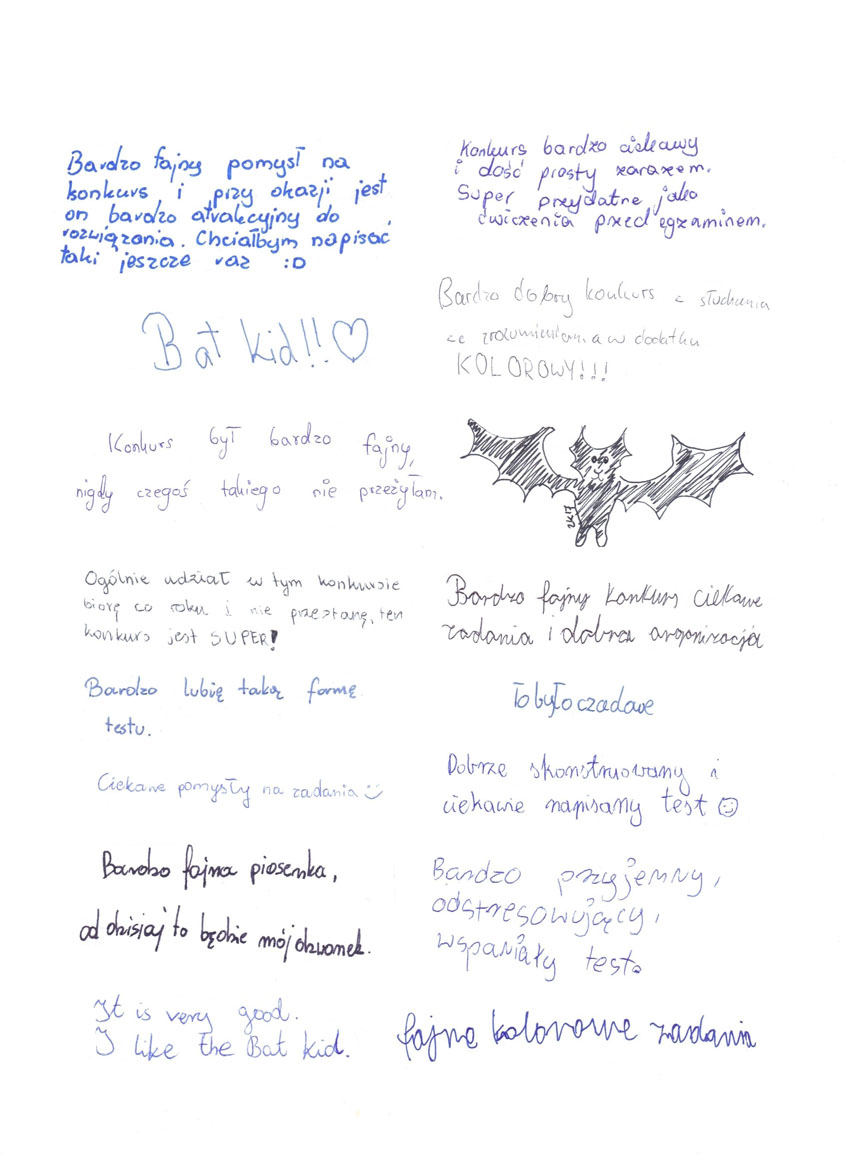 Bardzo fajny pomysł na
konkurs i przy okazji jest
on bardzo atrakcyjny do
rozwiązania. Chciałbym napisać
taki jeszcze raz :D
Bat kid!!♡
Konkurs był bardzo fajny,
nigdy czegoś takiego nie przeżyłam.
Ogólnie udział w tym konkursie
biorę co roku i nie przestanę, ten
konkurs jest SUPER!
Bardzo lubię taką formę
testu.
Ciekawe pomysły na zadania :)
Bardzo fajna piosenka,
od dzisiaj to będzie mój dzwonek.
It is very good.
I like the Bat kid.
Konkurs bardzo ciekawy
i dość prosty zarazem.
Super przydatne jako
ćwiczenia przed egzaminem.
Bardzo dobry konkurs z słuchania
ze zrozumieniem a w dodatku
KOLOROWY!!!
ZK17
Bardzo fajny konkurs ciekawe
zadania i dobra organizacja
To było czadowe
Dobrze skonstruowany i
ciekawie napisany test ☺
Bardzo przyjemny,
odstresowujący,
wspaniały test.
fajne kolorowe zadania